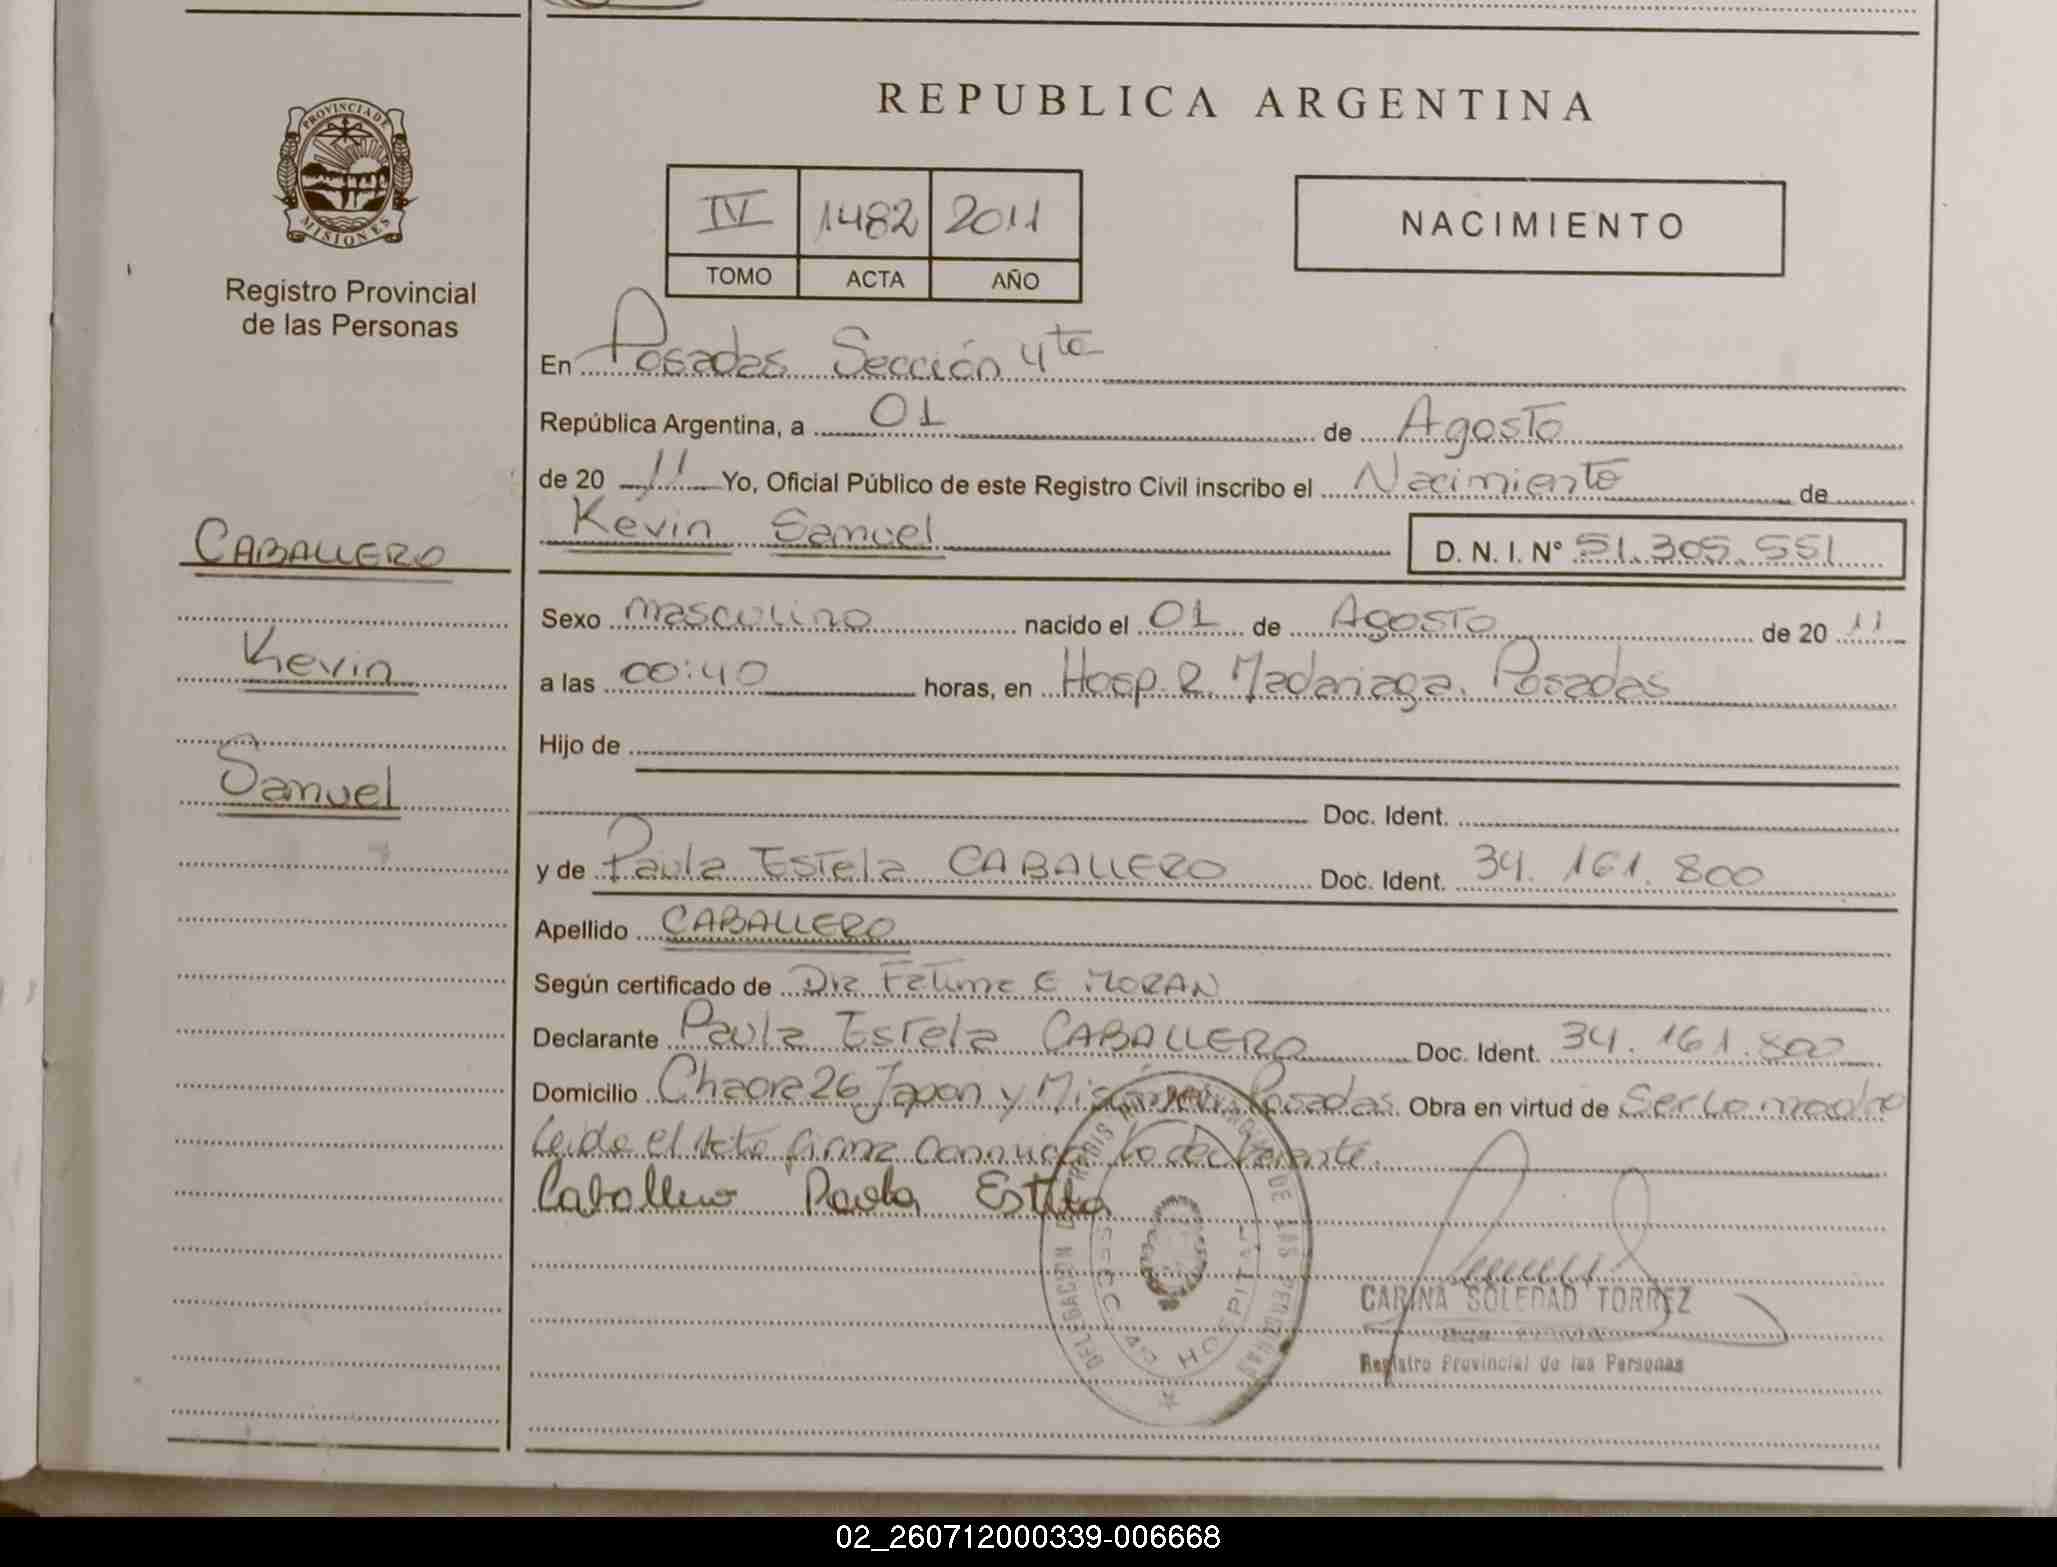 PROVINCIA DE
MISIONES
Registro Provincial
de las Personas
CABALLERO
Kevin
Samuel
REPUBLICA ARGENTINA
IV 1482 2011
TOMO ACTA AÑO
NACIMIENTO
En Posadas Sección 4ta
República Argentina, a 01 de Agosto
de 20 11 Yo, Oficial Público de este Registro Civil inscribo el Nacimiento de
Kevin Samuel D. N. I. N° 51.305.551
Sexo masculino nacido el 01 de Agosto de 20 11
a las 00:40 horas, en Hosp. R. Madariaga. Posadas
Hijo de
Doc. Ident.
y de Paula Estela CABALLERO Doc. Ident. 34.161.800
Apellido CABALLERO
Según certificado de Dra Fatima E MORAN
Declarante Paula Estela CABALLERO Doc. Ident. 34.161.800
Domicilio Chacra 26 Japon y Posadas Obra en virtud de Ser la madre
Leida el Acta firma conmigo la declarante.
Caballero Paola Estela
DE LAS PERSONAS
SECC. 4ta HOSPITAL
CARINA SOLEDAD TORREZ
Registro Provincial de las Personas
02_260712000339-006668